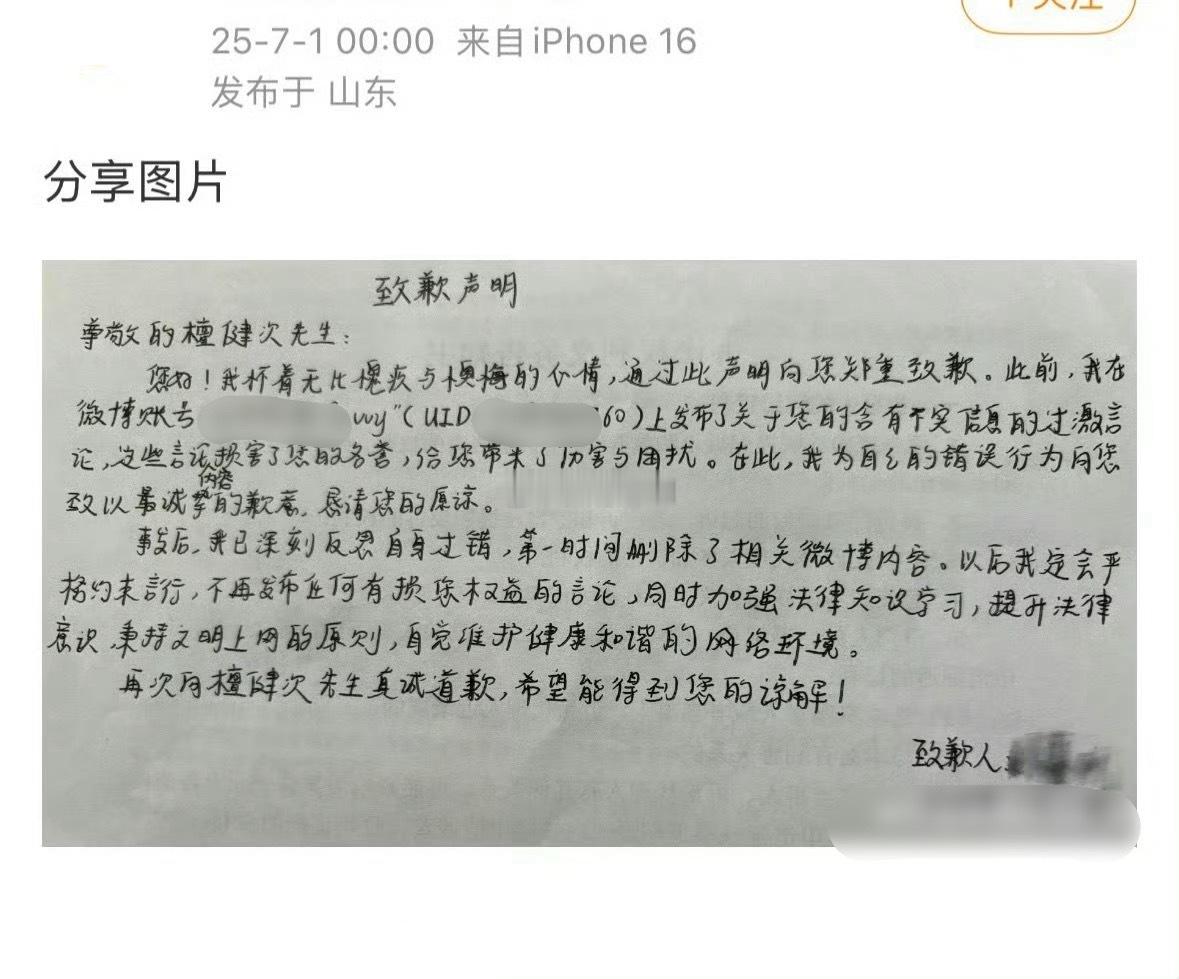 25-7-1 00:00 来自iPhone 16
发布于 山东
分享图片
致歉声明
尊敬的檀健次先生：
您好！我怀着无比愧疚与懊悔的心情，通过此声明向您郑重致歉。此前，我在
微博账号 vvy"（UID 60）上发布了关于您的含有不实信息的过激言
论，这些言论损害了您的名誉，给您带来了伤害与困扰。在此，我为自己的错误行为向您
内容
致以最诚挚的歉意，恳请您的原谅。
事后，我已深刻反思自身过错，第一时间删除了相关微博内容。以后我定会严
格约束言行，不再发布任何有损您权益的言论，同时加强法律知识学习，提升法律
意识，秉持文明上网的原则，自觉维护健康和谐的网络环境。
再次向檀健次先生真诚道歉，希望能得到您的谅解！
致歉人：